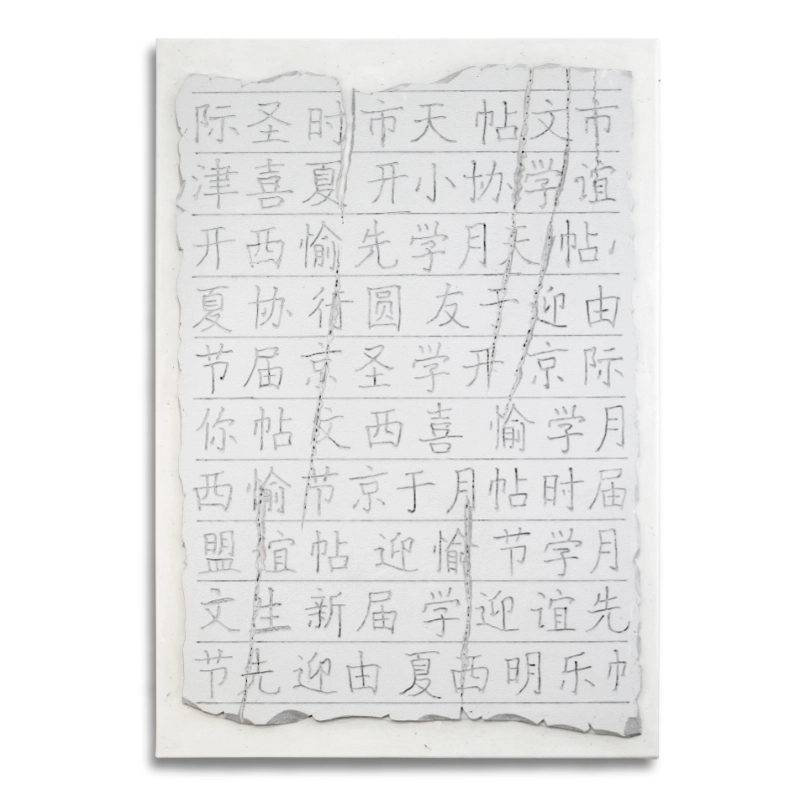 际圣时 市天 帖文市
津喜夏 开小协学谊
开西愉 先学月天帖
夏协 圆 友 于迎由
节届京圣学开京际
你帖文西喜 愉学月
西愉节京于月帖时届
盟谊帖 迎愉 节学月
文生新届 学迎谊先
节先迎由 夏西明乐